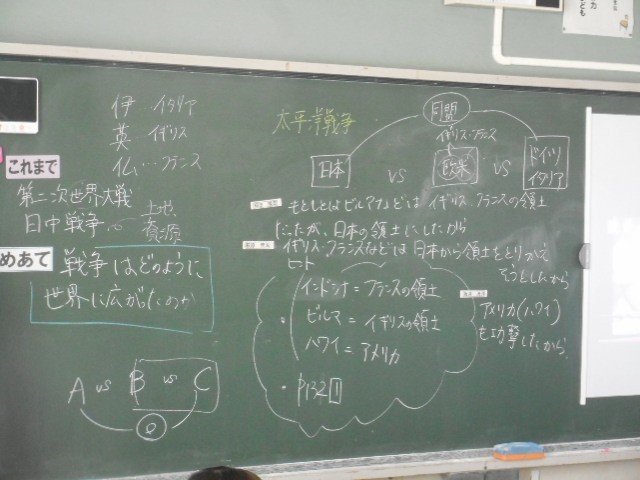 伊…イタリア
英 イギリス
仏…フランス
これまで
第二次世界大戦
日中戦争… 土地
資源
めあて
戦争は、どのように
世界に広がたのか
A vs B vs C
太平洋戦争
同盟
イギリス・フランス
日本 vs 欧米 vs ドイツ
イタリア
もともとはビルマなどは イギリス フランスの領土
だったが、日本の領土にしたから
イギリス・フランスなどは 日本から領土をとりかえ
そうとしたから
ヒント
インドシナ=フランスの領土
・ビルマ=イギリスの領土
ハワイ=アメリカ
・P132 1
アメリカ(ハワイ)
も攻撃したから